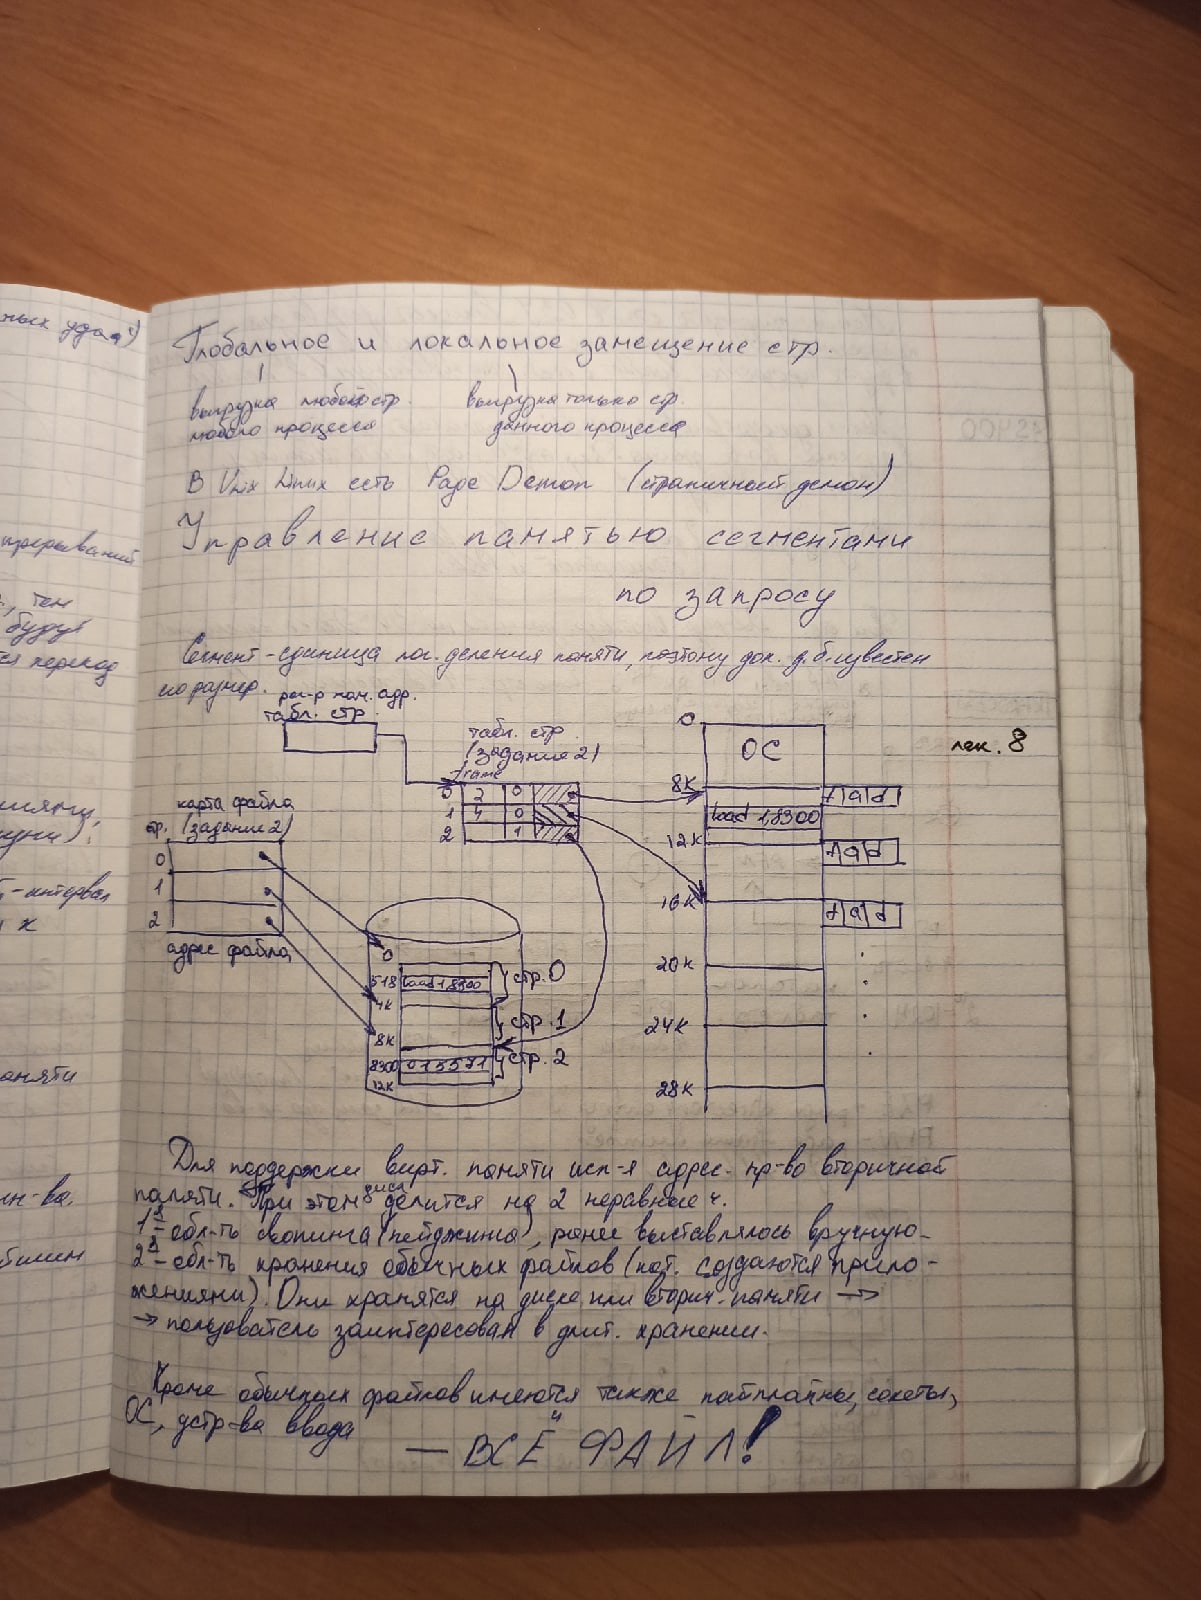 ных удал.)
прерываний
, тем
будут
ся переход
- интервал
и х
памяти
ин-ва.
Глобальное и локальное замещение стр.
выгрузка любой стр.
любого процесса
выгрузка только стр.
данного процесса
В Unix Linux есть Page Demon (страничный демон)
Управление памятью сегментами
по запросу
Сегмент - единица лог. деления памяти, поэтому дол. д.б. известен
его размер.
рег-р нач. адр.
табл. стр.
табл. стр.
(задание 2)
frame
0 2 0
1 4 0
2 1
карта файла
стр. (задание 2)
0
1
2
адрес файла
0
518 load 1,8300
4К
8К
8300 015571
12К
стр. 0
стр. 1
стр. 2
0
ОС
8К
load 1,8300
12К
16К
20К
24К
28К
f a d
f a d
f a d
лек. 8
Для поддержки вирт. памяти исп-я адрес. пр-во вторичной
памяти. При этом диск делится на 2 неравные ч.
1я - обл-ть свопинга (пейджинга), ранее выставлялось вручную
2я - обл-ть хранения обычных файлов (кот. создаются прило-
жениями). Они хранятся на диске или вторич. памяти →
→ пользователь заинтересован в длит. хранении.
Кроме обычных файлов имеются также пайплайны, сокеты,
ОС, устр-ва ввода
— ВСЁ ФАЙЛ!